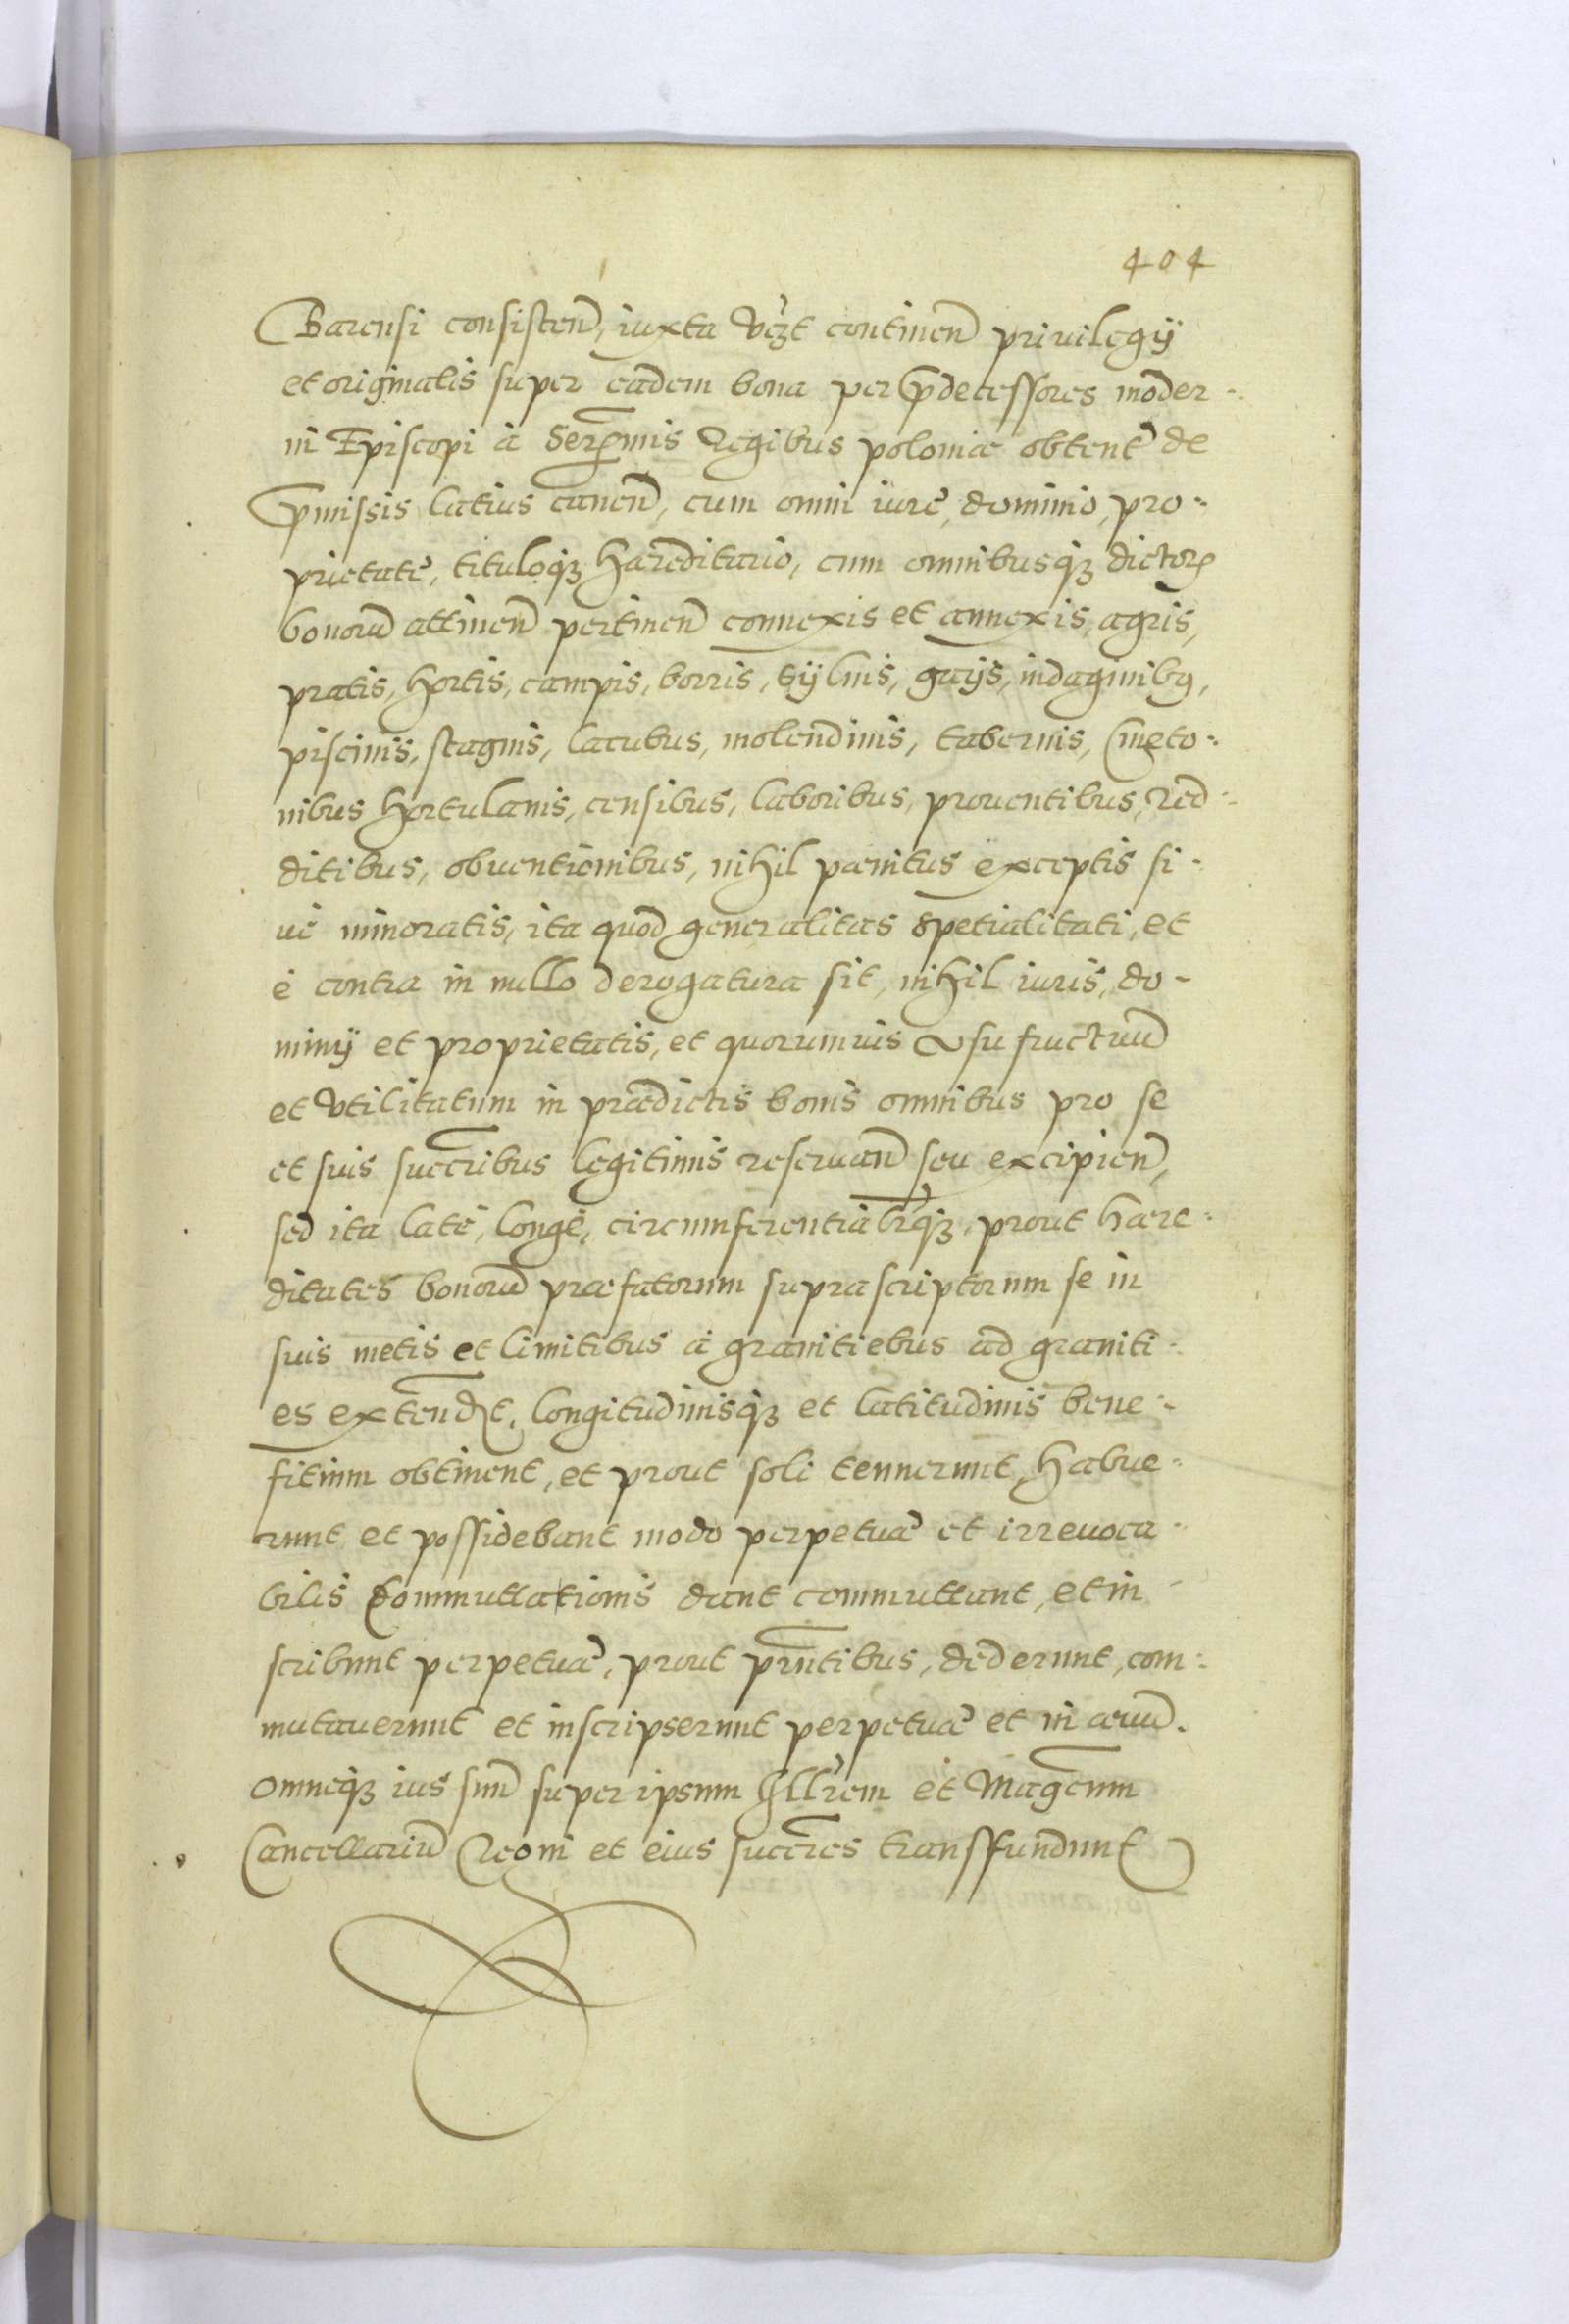 404
Barensi consisten, iuxta vĕzt continen privilegÿ
et originalis super eadem bona per p̄decessores moder-
ni Episcopi à Serp̄mis Regibus poloniæ obtent de
p̄missis latius canen, cum omni iure, dominio, pro-
prietate, tituloqȝ hæreditario, cum omnibusqȝ dictorꝝ
bonorū attinen pertinen connexis et annexis, agris,
pratis, hortis, campis, borris, sÿluis, gaijs, indaginibꝯ,
piscinis, stagnis, lacubus, molendinis, tabernis, Cmeto-
nibus hortulanis, censibus, laboribus, prouentibus, red-
ditibus, obuentionibus, nihil pænitus exceptis si-
ué minoratis, ita quod generalitas spetialitati, et
è contra in nullo derogatura sit, nihil iuris, do-
minÿ et proprietatis, et quorumuis vsufructuū
et vtilitatum in prædictis bonis omnibus pro se
et suis succribus legitimis reseruan seu excipien,
sed ita latè, longè, circumferentialrqȝ, prout hære-
ditates bonorū præfatorum suprascriptorum se in
suis metis et limitibus à granitiebus ad graniti-
es extendt, longitudinisqȝ et latitudinis bene-
fitium obtinent, et prout soli tennerunt, habue-
runt et possidebant modo perpetuæ et irreuoca-
bilis Commuttationis dant commuttant, et in-
scribunt perpetuæ, prout prntibus, dederunt, com-
mutauerunt et inscripserunt perpetuæ et in æuū.
omneqȝ ius suū super ipsum Illrem et Magcum
Cancellariū Regni et eius succres transfundunt